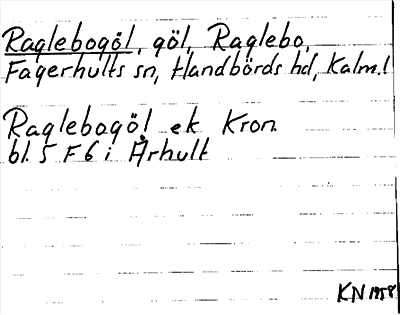 Raglebogöl, göl, Raglebo,
Fagerhults sn, Handbörds hd, Kalm.l
Raglebogöl ek Kron
bl. 5 F 6 i Århult
KN 1958